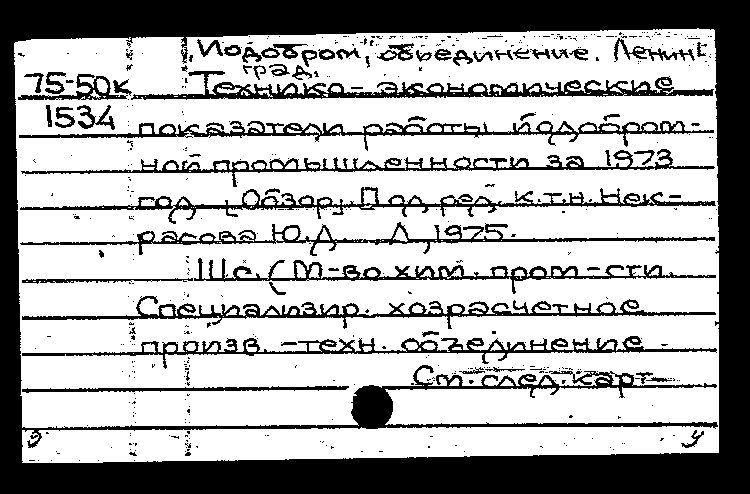 "Йодобром", объединение. Ленинг
град.
75-50к Технико-экономические
1534 показатели работы йодобром-
ной промышленности за 1973
год. [Обзор]. Под ред. к.т.н. Нек-
расова Ю.Д. Л, 1975.
111с. (М-во хим. пром-сти.
Специализир. хозрасчетное
произв.-техн. объединение
См. след. карт-
э у